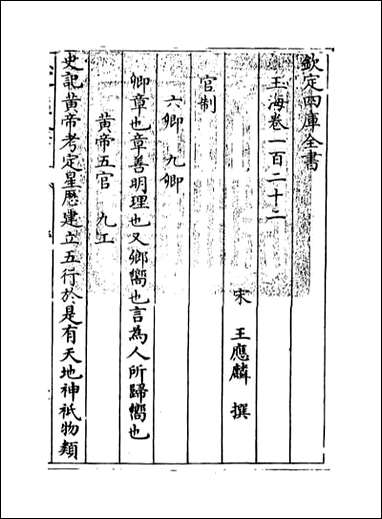 欽定四庫全書
玉海卷一百二十二
宋 王應麟 撰
官制
六卿 九卿
卿章也章善明理也又卿嚮也言為人所歸嚮也
黄帝五官 九工
史記黄帝考定星歴建立五行於是有天地神祇物類